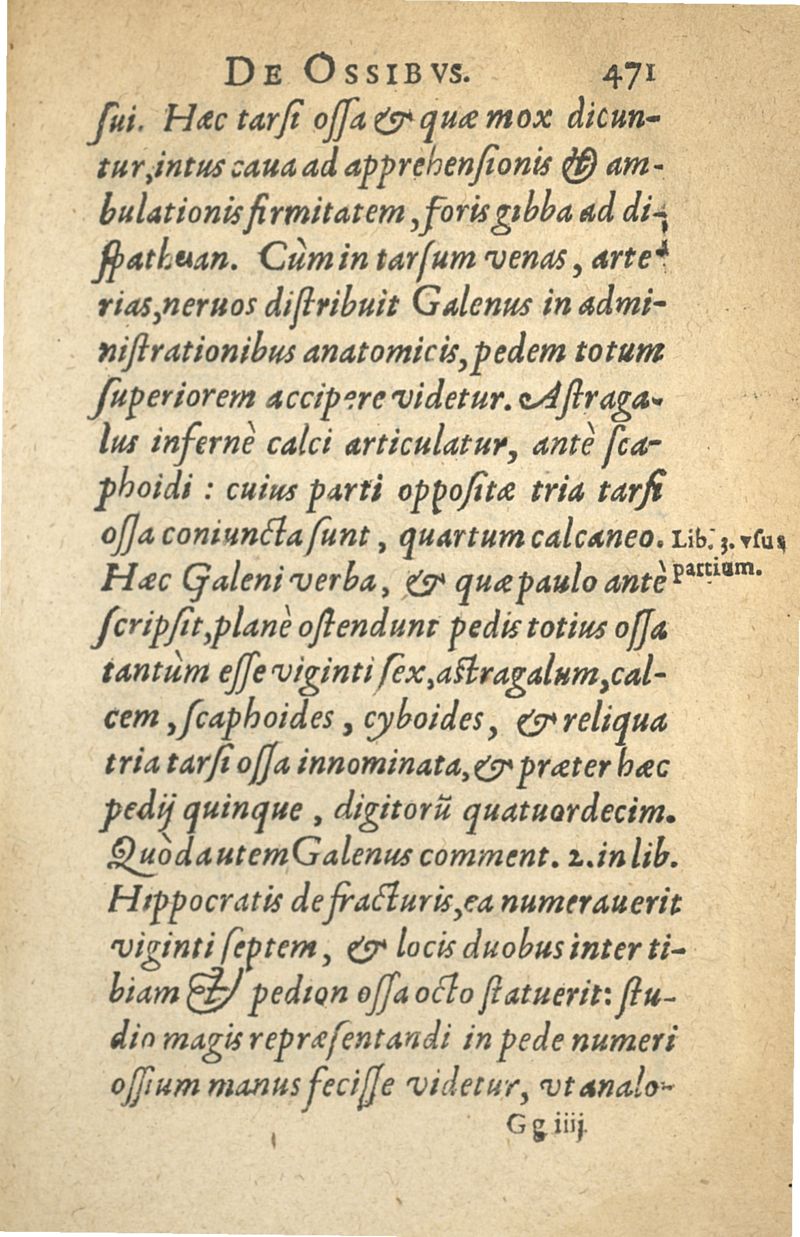 DE OSSIBVS. 471
ſui. Hæc tarſi oſſa & quæ mox dicun-
tur,intus caua ad apprehenſionis & am-
bulationis firmitatem, foris gibba ad di-
ſpathuan. Cùm in tarſum venas, arte-
rias,neruos diſtribuit Galenus in admi-
niſtrationibus anatomicis,pedem totum
ſuperiorem accipere videtur. Aſtraga-
lus infernè calci articulatur, antè ſca-
phoidi : cuius parti oppoſitæ tria tarſi
oſſa coniuncta ſunt, quartum calcaneo. Lib. 3. vſus
Hæc Galeni verba, & quæ paulo antè partium.
ſcripſit,planè oſtendunt pedis totius oſſa
tantùm eſſe viginti ſex,aſtragalum,cal-
cem, ſcaphoides, cyboides, & reliqua
tria tarſi oſſa innominata,& præter hæc
pedij quinque, digitorū quatuordecim.
Quòd autem Galenus comment. 2. in lib.
Hippocratis de fracturis,ea numerauerit
viginti ſeptem, & locis duobus inter ti-
biam & pedion oſſa octo ſtatuerit: ſtu-
dio magis repræſentandi in pede numeri
oſſium manus feciſſe videtur, vt analo-
Gg iiij